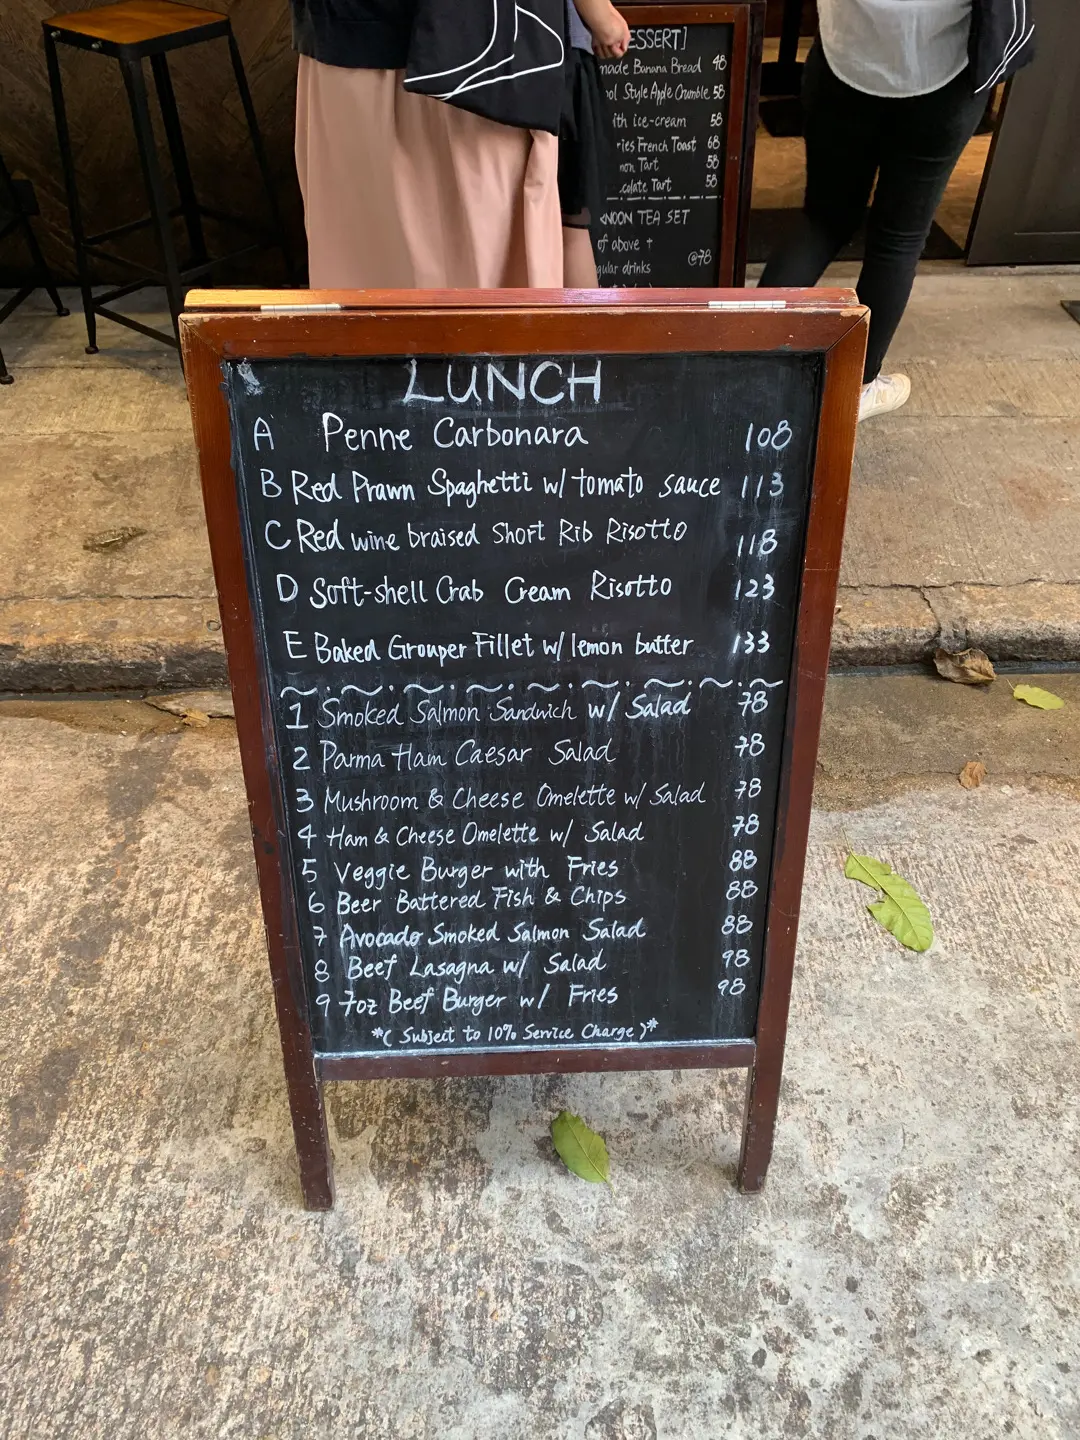 ESSERT]
made Banana Bread 48
ol Style Apple Crumble 58
ith ice-cream 58
ries French Toast 68
mon Tart 58
colate Tart 58
NOON TEA SET
of above +
gular drinks @78
LUNCH
A Penne Carbonara 108
B Red Prawn Spaghetti w/ tomato sauce 113
C Red wine braised Short Rib Risotto 118
D Soft-shell Crab Cream Risotto 123
E Baked Grouper Fillet w/ lemon butter 133
1 Smoked Salmon Sandwich w/ Salad 78
2 Parma Ham Caesar Salad 78
3 Mushroom & Cheese Omelette w/ Salad 78
4 Ham & Cheese Omelette w/ Salad 78
5 Veggie Burger with Fries 88
6 Beer Battered Fish & Chips 88
7 Avocado Smoked Salmon Salad 88
8 Beef Lasagna w/ Salad 98
9 7oz Beef Burger w/ Fries 98
*( Subject to 10% Service Charge )*